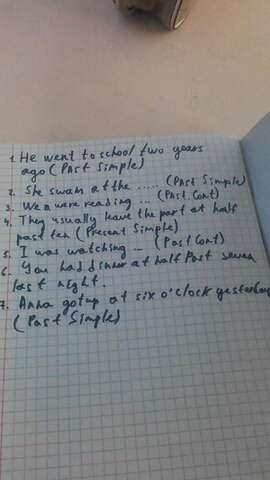 1. He went to school two years
ago (Past Simple)
2. She swam at the ..... (Past Simple)
3. We were reading ... (Past Cont)
4. They usually leave the port at half
past ten (Present Simple)
5. I was watching ... (Past Cont)
6. You had dinner at half Past seven
last night.
7. Anna got up at six o'clock yesterday
(Past Simple)